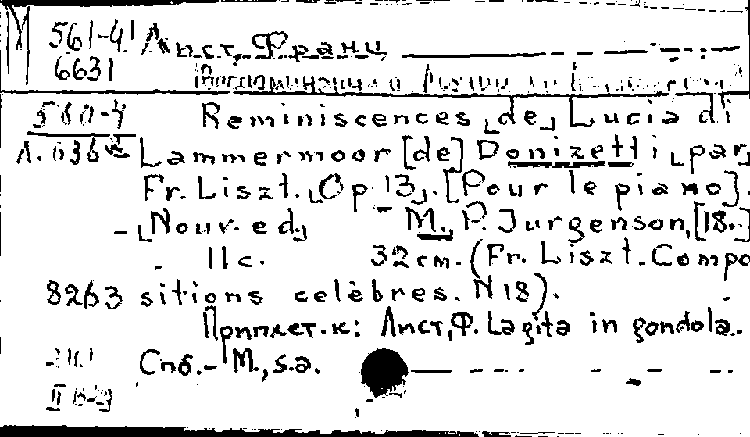 М 561-41 Лист, Франц
6631
Воспоминания о Лючии ди
560-4 Reminiscences [de] Lucia di
Л. 636 Lammermoor [de] Donizetti [par]
Fr. Liszt. [Op 13]. [Pour le piano].
- [Nouv. ed] M., P. Jurgenson, [18..]
11 с. 32 см. (Fr. Liszt. Compo
8263 sitions celèbres. N 18).
Приплет. к: Лист, Ф. La gita in gondola.
Спб. - М., s.a.